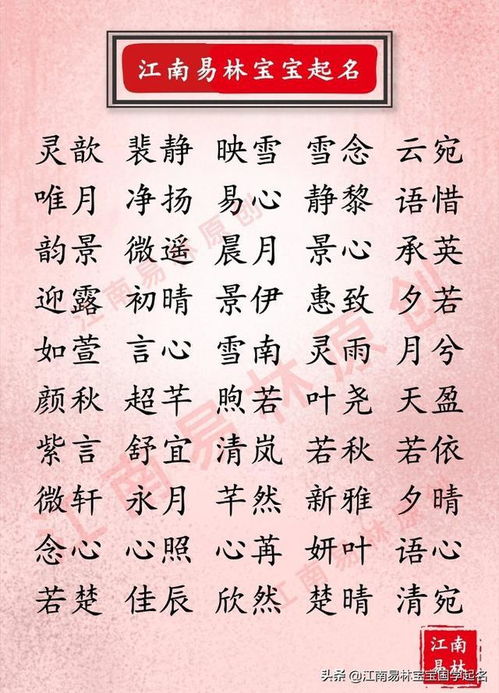 江南易林宝宝起名
灵歆 裴静 映雪 雪念 云宛
唯月 净扬 易心 静黎 语惜
韵景 微遥 晨月 景心 承英
迎露 初晴 景伊 惠致 夕若
如萱 言心 雪南 灵雨 月兮
颜秋 超芊 煦若 叶尧 天盈
紫言 舒宜 清岚 若秋 若依
微轩 永月 芊然 新雅 夕晴
念心 心照 心苒 妍叶 语心
若楚 佳辰 欣然 楚晴 清宛
江南易林原创
江南易林原创
江南易林原创
江南
易林
头条 @江南易林宝宝国学起名